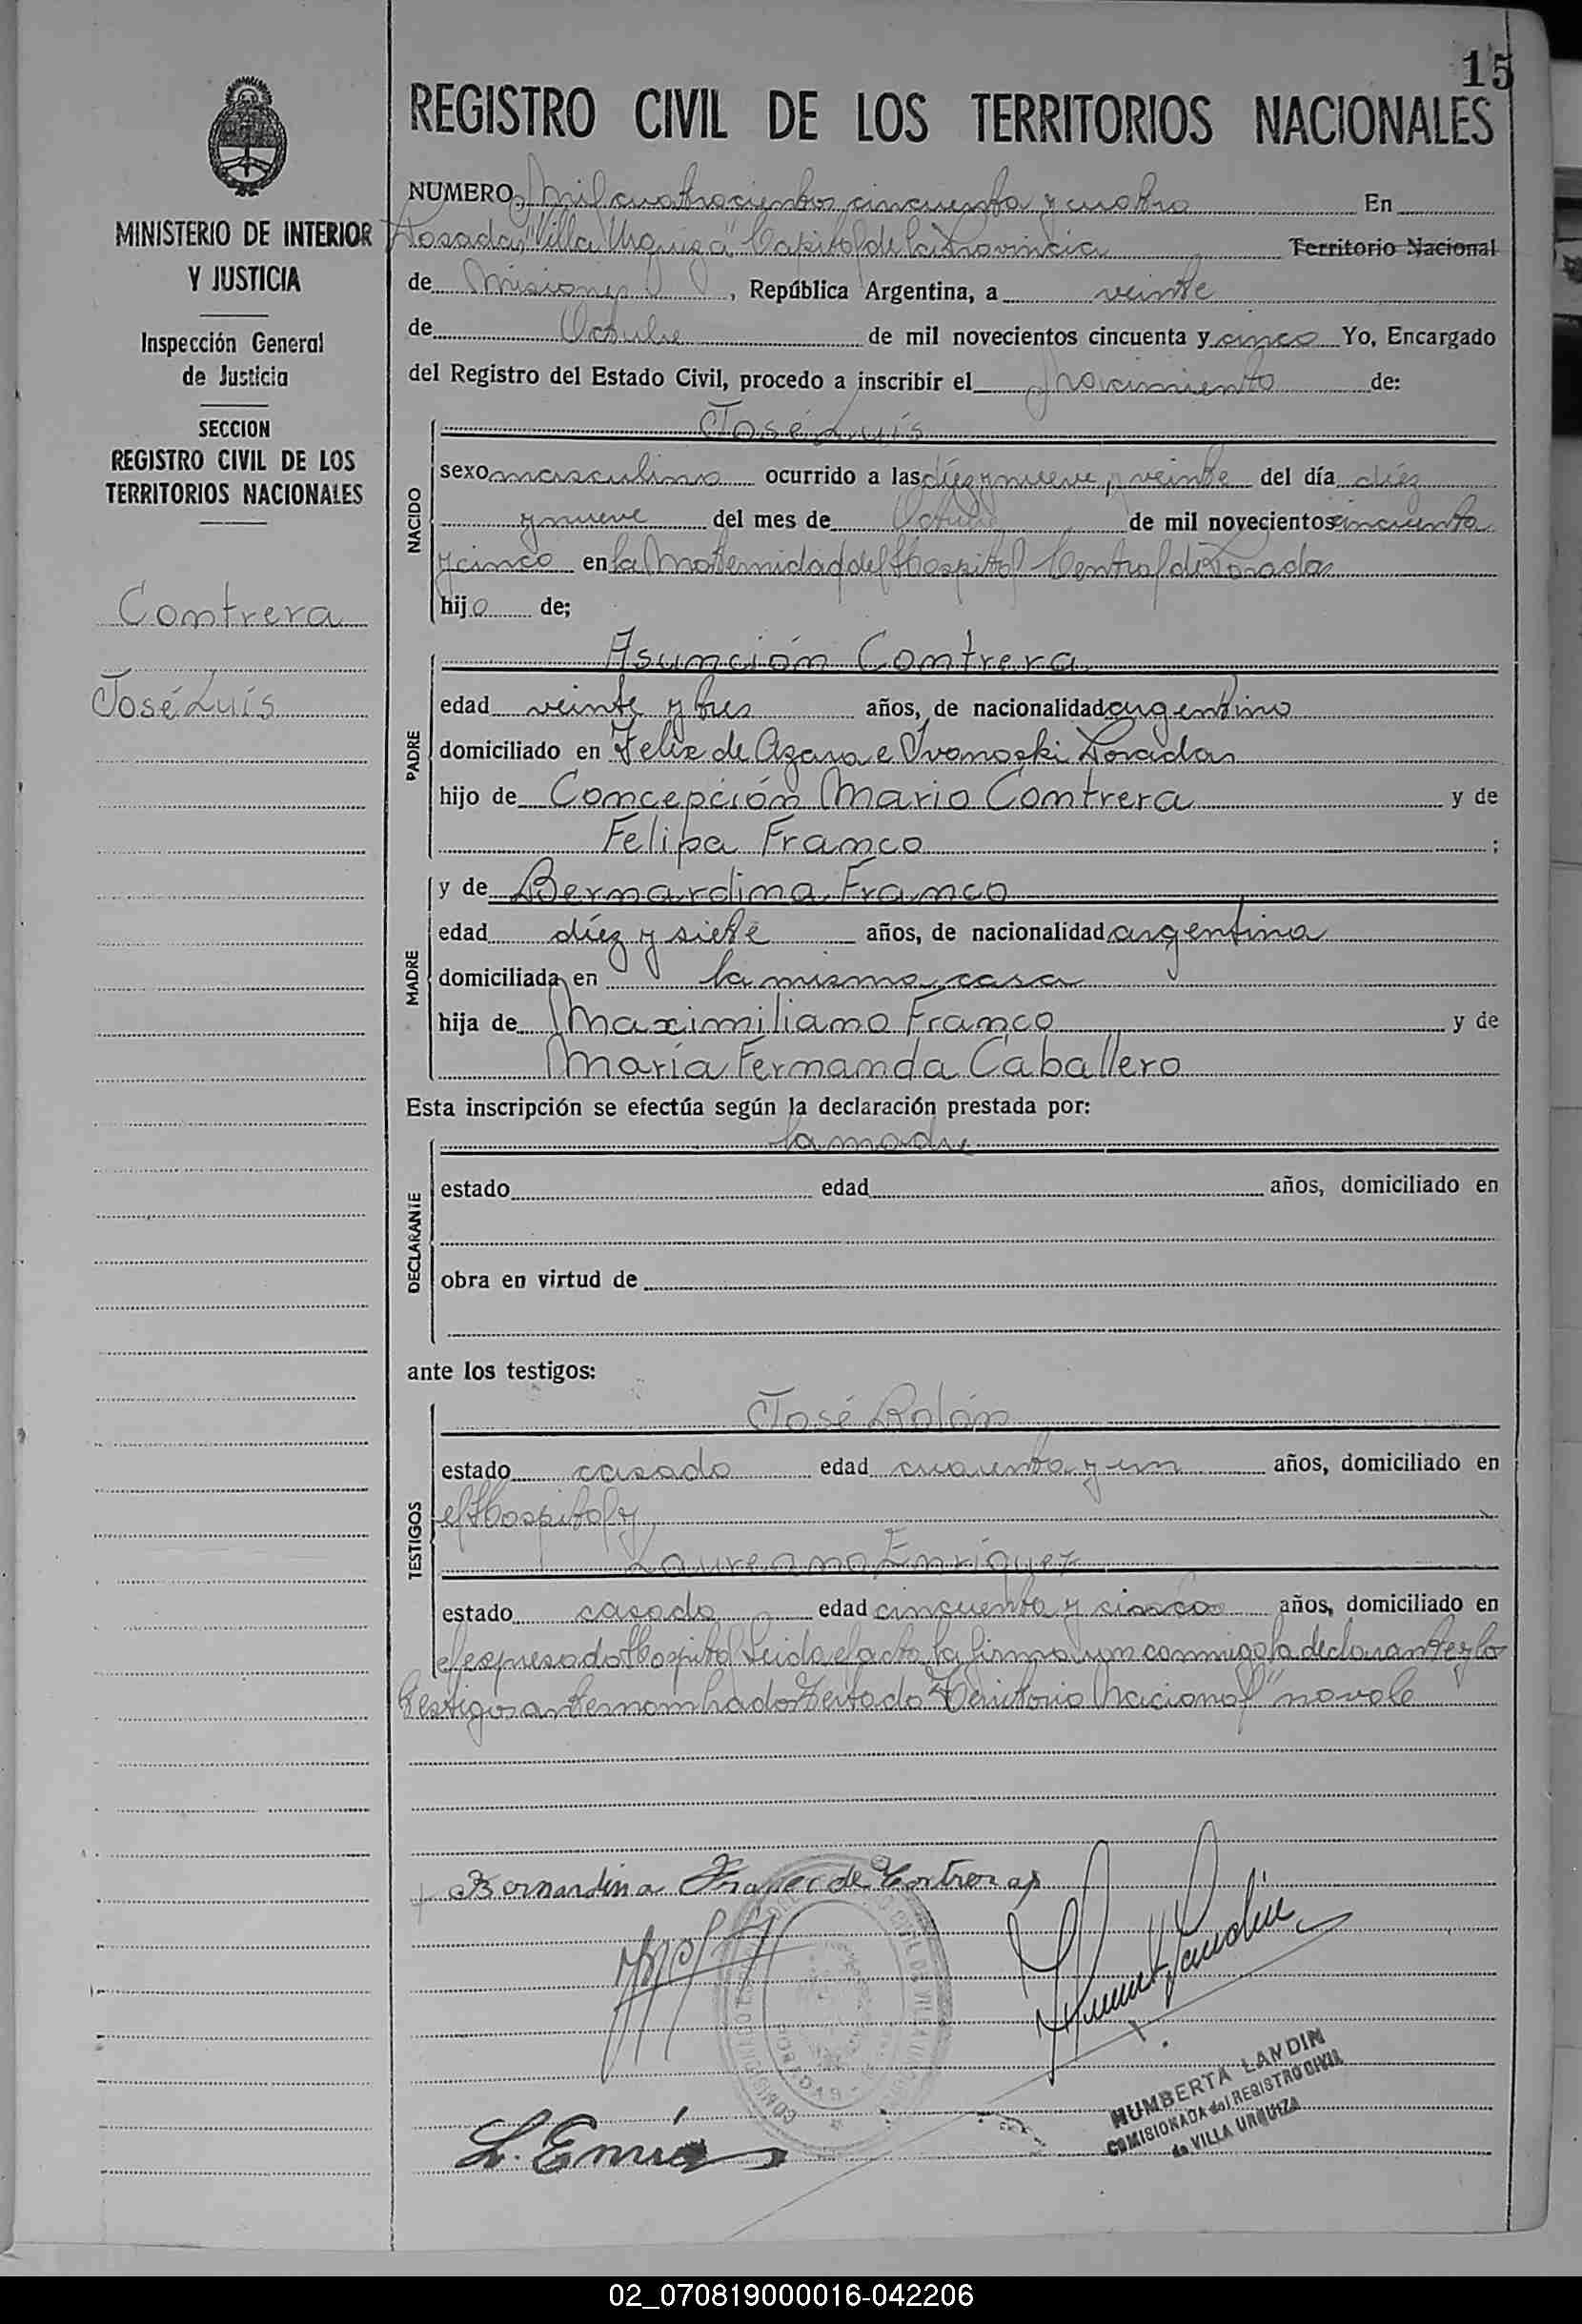 15
REGISTRO CIVIL DE LOS TERRITORIOS NACIONALES
MINISTERIO DE INTERIOR
Y JUSTICIA
Inspección General
de Justicia
SECCION
REGISTRO CIVIL DE LOS
TERRITORIOS NACIONALES
Contrera
José Luís
NUMERO Mil cuatrocientos cincuenta y cuatro En
Posadas, "Villa Urquiza" Capital de la Provincia Territorio Nacional
de Misiones, República Argentina, a veinte
de Octubre de mil novecientos cincuenta y cinco Yo, Encargado
del Registro del Estado Civil, procedo a inscribir el Nacimiento de:
NACIDO
José Luís
sexo masculino ocurrido a las díez y nueve y veinte del día díez
y nueve del mes de Octubre de mil novecientos cincuenta
y cinco en la Maternidad del Hospital Central de Posadas
hijo de;
PADRE
Asunción Contrera
edad veinte y tres años, de nacionalidad argentino
domiciliado en Felix de Azara e Ivanoski Posadas
hijo de Concepción Mario Contrera y de
Felipa Franco ;
MADRE
y de Bernardina Franco
edad díez y siete años, de nacionalidad argentina
domiciliada en la misma casa
hija de Maximiliano Franco y de
María Fernanda Caballero
Esta inscripción se efectúa según la declaración prestada por:
DECLARANTE
la madre
estado edad años, domiciliado en
obra en virtud de
ante los testigos:
TESTIGOS
José Rolón
estado casado edad cuarenta y un años, domiciliado en
el Hospital y
Laureano Enríquez
estado casado edad cincuenta y cinco años, domiciliado en
el expresado Hospital Leida el acta la firmaron conmigo la declarante y los
testigos antes nombrados Testado "Territorio Nacional" no vale
Bernardina Franco de Contreras
L. Enri
HUMBERTA LANDIN
COMISIONADA del REGISTRO CIVIL
de VILLA URQUIZA
02_070819000016-042206